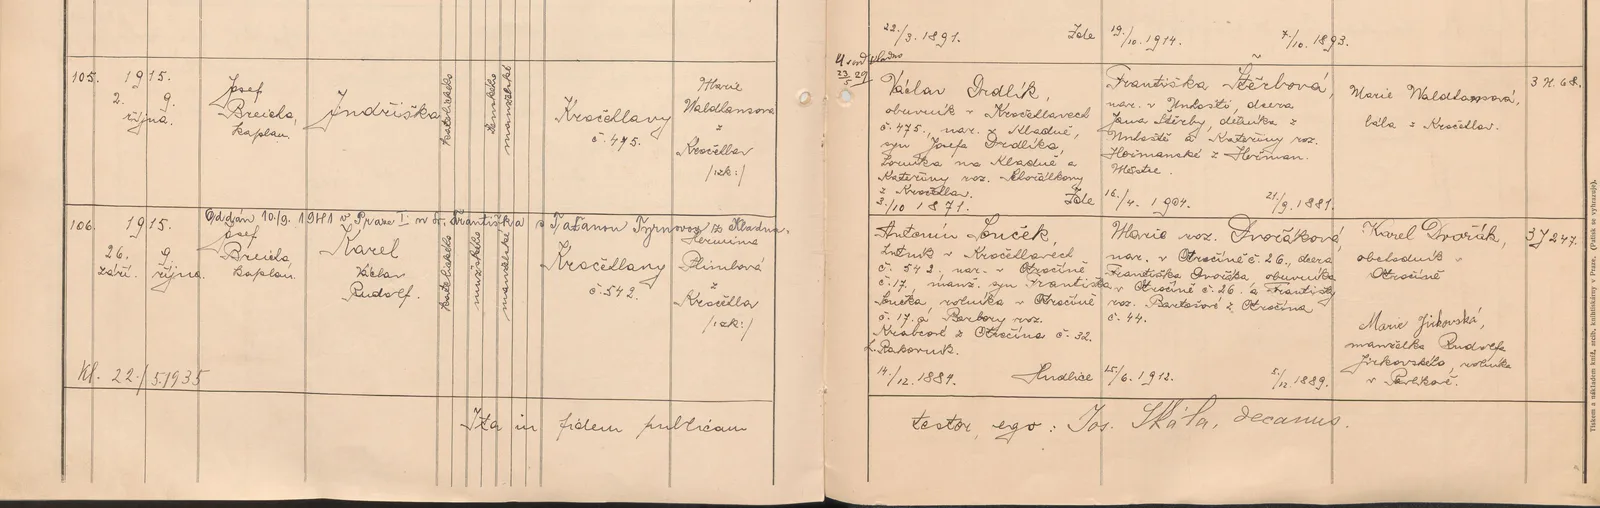 22./3. 1891.
Zde
19./10. 1914.
7./10. 1893.
105.
1915.
2. 9.
října.
Josef
Breicha,
kaplan.
Jindřiška
katolického
ženského
manželské
Kročehlavy
č. 475.
Marie
Waldhansová
z
Kročehlav
/:zk:/
23/5 29
Václav Drdlík,
obuvník v Kročehlavech
č. 475., nar. z Kladně,
syn Josefa Drdlíka,
horníka na Kladně a
Kateřiny roz.
z Kročehlav.
3./10 1871.
Zde
Františka Štěrbová,
nar. v Unhošti, dcera
Jana Štěrby, dělníka z
Unhoště a Kateřiny roz.
Heřmanské z Heřman.
Městce.
16./4. 1904.
21./9. 1881.
Marie Waldhansová,
bába z Kročehlav.
106.
1915.
26. 9.
září. října.
Oddán 10./9. 1941 v Praze I. u sv. Františka s Taťanou Tyrnovou z Kladna.
Josef
Breicha,
kaplan.
Karel
Václav
Rudolf.
katolického
mužského
manželské
Kročehlavy
č. 542.
Hermína
z
Kročehlav
/:zk:/
Kl. 22./5. 1935
Antonín Souček,
v Kročehlavech
č. 542., nar. v Otročině
č. 17., manž. syn Františka
Součka, rolníka v Otročině
č. 17. a Barbory roz.
z Otročina č. 32.
h. Rakovník.
14./12. 1884.
Hudlice
Marie roz. Dvořáková,
nar. v Otročině č. 26., dcera
Františka Dvořáka, obuvníka
v Otročině č. 26. a Františky
roz. Bartošové z Otročina
č. 44.
15./6. 1912.
5./12. 1889.
Karel Dvořák,
obchodník v
Otročině
Marie Jirkovská,
manželka Rudolfa
Jirkovského, rolníka
v Pavlíkově.
Ita in fidem publicam
testor, ego: Jos. Skála, decanus.
Tiskem a nákladem knih, sešit, knihtiskárny v Praze. (Patisk se vyhrazuje).